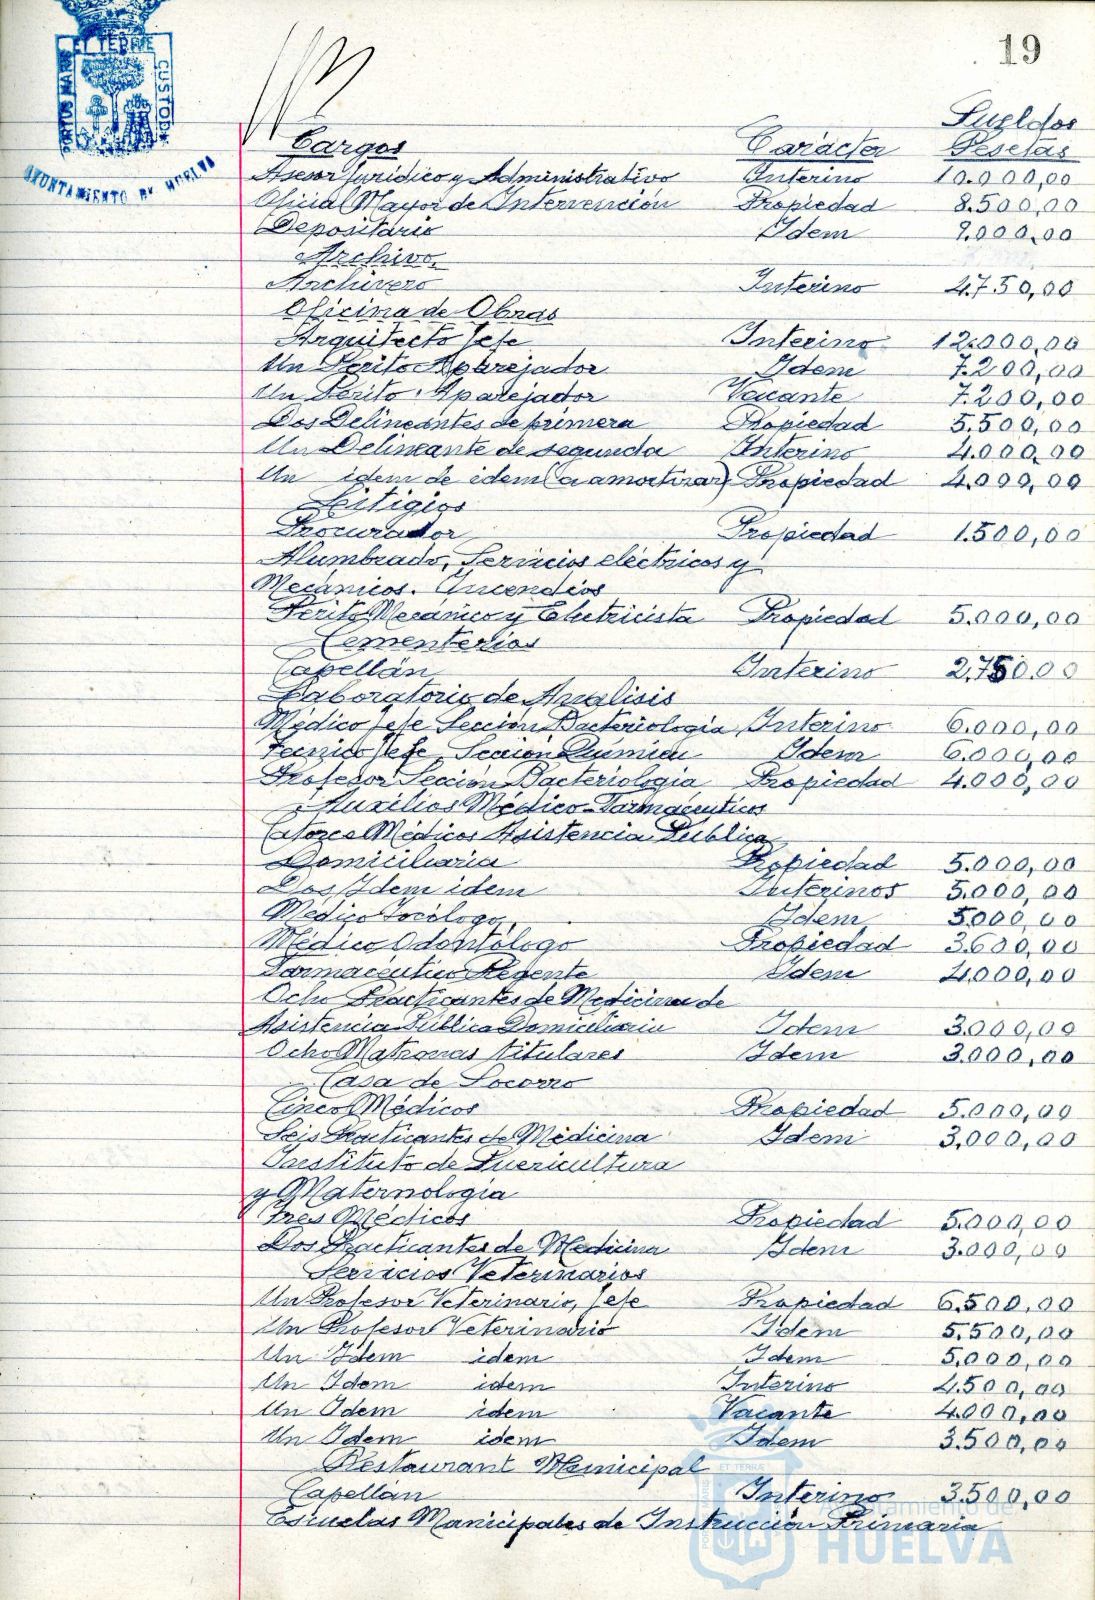 19
PORTUS MARIS ET TERRAE CUSTODIA
AYUNTAMIENTO DE HUELVA
Sueldos
Cargos Carácter Pesetas
Asesor Jurídico y Administrativo Interino 10.000,00
Oficial Mayor de Intervención Propiedad 8.500,00
Depositario Idem 9.000,00
Archivo.
Archivero Interino 4.750,00
Oficina de Obras
Arquitecto Jefe Interino 12.000,00
Un Perito Aparejador Idem 7.200,00
Un Perito Aparejador Vacante 7.200,00
Dos Delineantes de primera Propiedad 5.500,00
Un Delineante de segunda Interino 4.000,00
Un idem de idem (a amortizar) Propiedad 4.000,00
Litigios
Procurador Propiedad 1.500,00
Alumbrado, Servicios eléctricos y
Mecánicos. Incendios
Perito Mecánico y Electricista Propiedad 5.000,00
Cementerios
Capellán Interino 2.750.00
Laboratorio de Análisis
Médico Jefe Sección Bacteriologia Interino 6.000,00
Técnico Jefe Sección Química Idem 6.000,00
Profesor Sección Bacteriologia Propiedad 4.000,00
Auxilios Médico-Farmaceuticos
Catorce Médicos Asistencia Publica
Domiciliaria Propiedad 5.000,00
Dos Idem idem Interinos 5.000,00
Médico Tocólogo Idem 5000,00
Médico Odontólogo Propiedad 3.600,00
Farmacéutico Regente Idem 4.000,00
Ocho Practicantes de Medicina de
Asistencia Publica Domiciliaria Idem 3.000,00
Ocho Matronas titulares Idem 3.000,00
Casa de Socorro
Cinco Médicos Propiedad 5.000,00
Seis Practicantes de Medicina Idem 3,000,00
Instituto de Puericultura
y Maternologia
Tres Médicos Propiedad 5.000,00
Dos Practicantes de Medicina Idem 3.000,00
Servicios Veterinarios
Un Profesor Veterinario, Jefe Propiedad 6.500,00
Un Profesor Veterinario Idem 5.500,00
Un Idem idem Idem 5.000,00
Un Idem idem Interino 4.500,00
Un Idem idem Vacante 4.000,00
Un Idem idem Idem 3.500,00
Restaurant Municipal
Capellán Interino 3.500,00
Escuelas Municipales de Instrucción Primaria
Ayuntamiento de
HUELVA